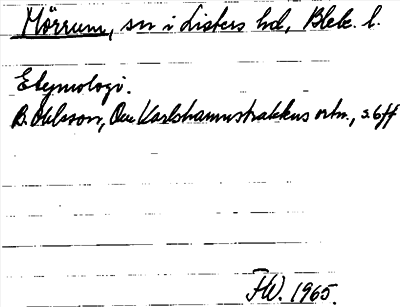 Mörrum, sn i Listers hd, Blek. l.
Etymologi.
B. Ohlsson, Om Karlshamnstraktens ortn., s. 6 ff
FW. 1965.